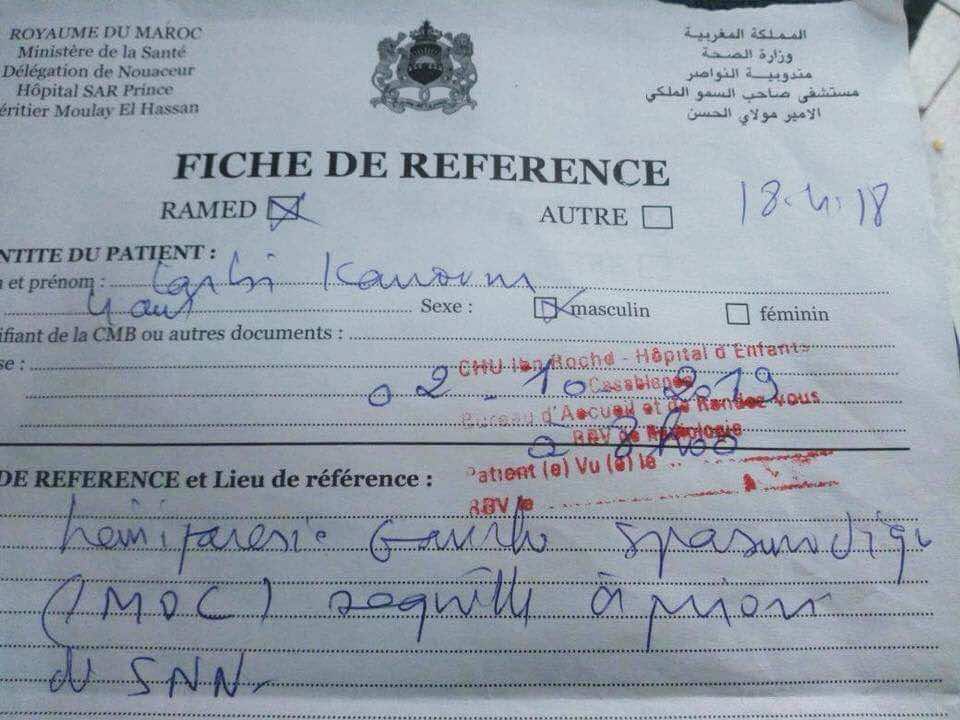 ROYAUME DU MAROC
Ministère de la Santé
Délégation de Nouaceur
Hôpital SAR Prince
éritier Moulay El Hassan
المملكة المغربية
وزارة الصحة
مندوبية النواصر
مستشفى صاحب السمو الملكي
الامير مولاي الحسن
FICHE DE REFERENCE
RAMED AUTRE
18.4.18
NTITE DU PATIENT :
et prénom :
4 ans Sexe : masculin féminin
ifiant de la CMB ou autres documents :
se :
CHU Ibn Rochd - Hôpital d'Enfants
Casablanca
02-10-2019
Bureau d'Accueil et de Rendez-vous
RDV de
à 8h00
Patient (e) Vu (e) le
RDV le
DE REFERENCE et Lieu de référence :
hémiparésie Gauche spasmodique
(IMOC) séquelle à priori
de SNN.